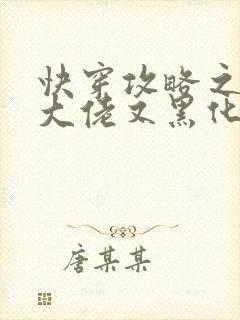 快穿攻略之
大佬又黑化
唐某某